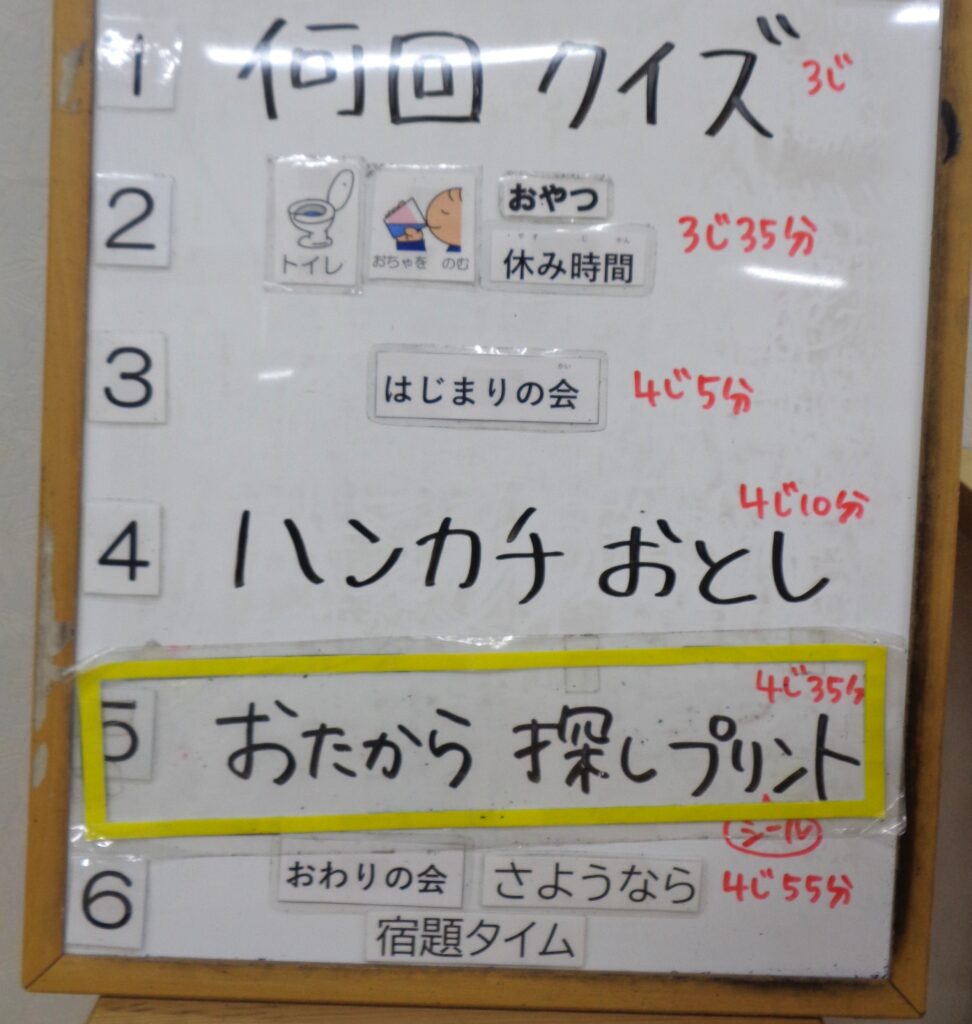 1 何回クイズ 3じ
2 トイレ おちゃを のむ おやつ 休み時間 3じ35分
3 はじまりの会 4じ5分
4 ハンカチおとし 4じ10分
5 おたから探しプリント 4じ35分
シール
6 おわりの会 さようなら 4じ55分
宿題タイム